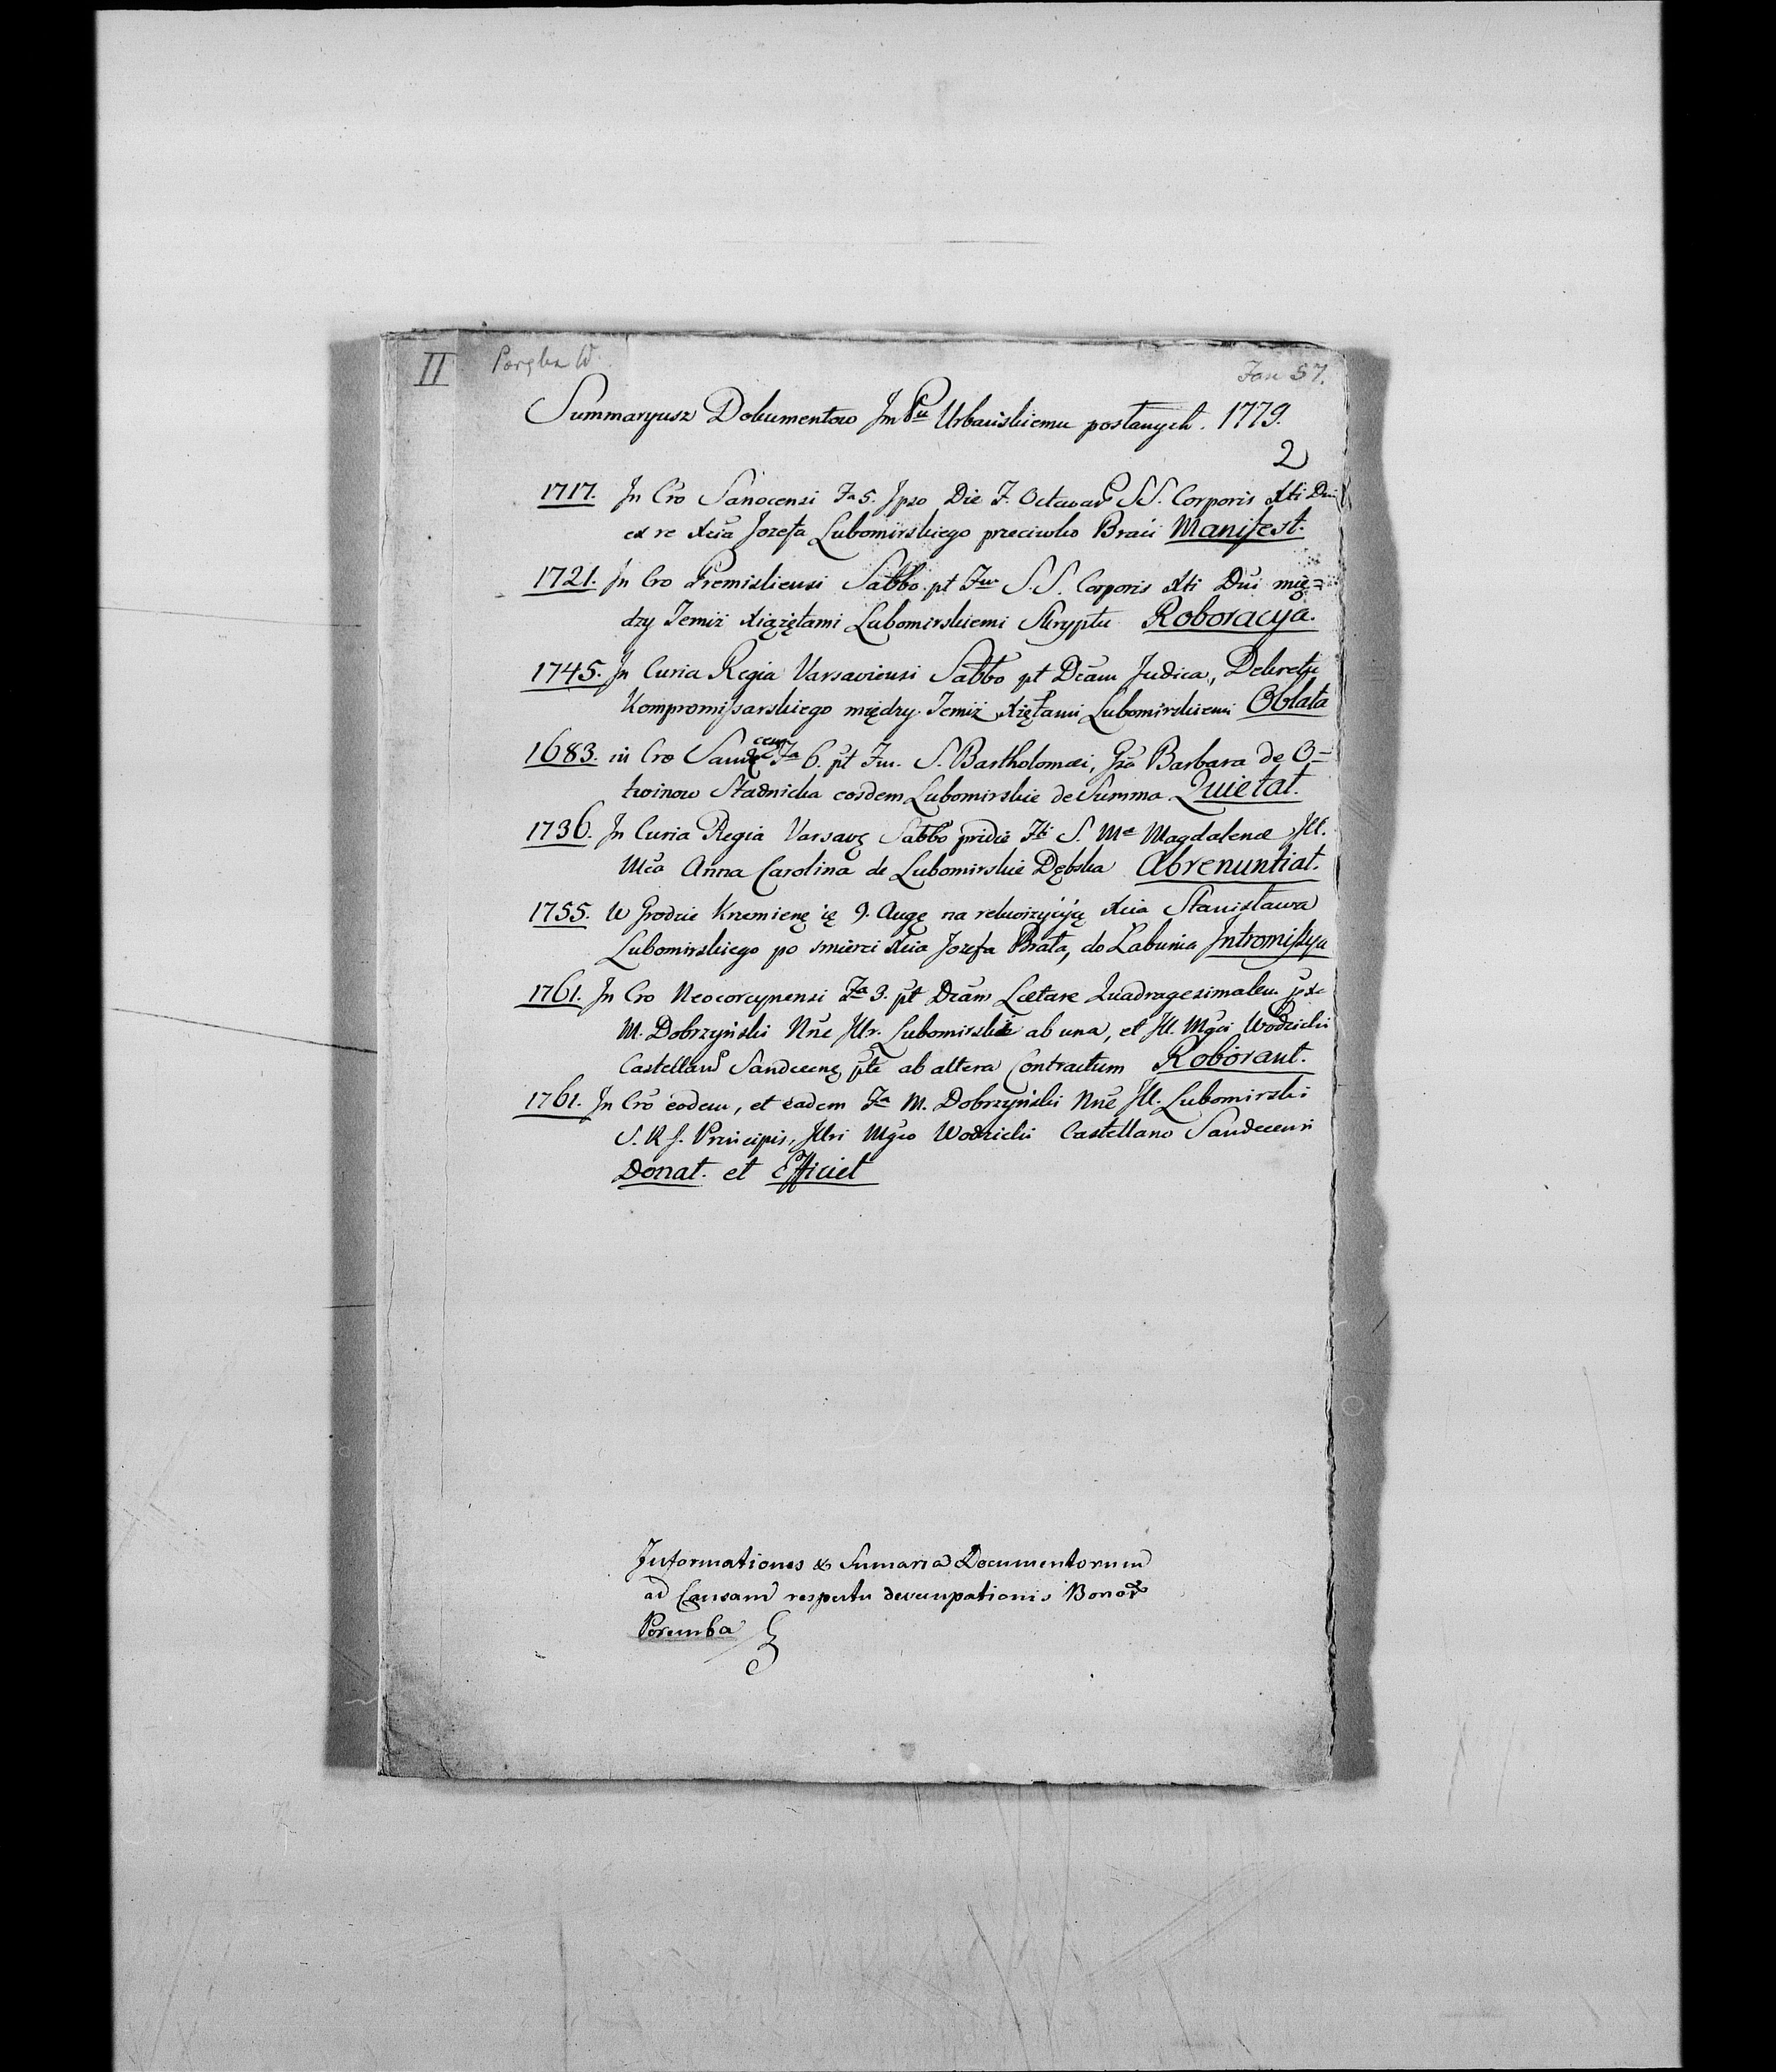 II
Poręba W.
Fasc 57.
Summaryusz Dokumentow Jm Pu Urbańskiemu posłanych. 1779.
2
1717. In Cro Sanocensi Fa 5. Ipso Die F. Octavar SS. Corporis Xti Dni
ex re Xcia Jozefa Lubomirskiego przeciwko Braci Manifest.
1721. In Cro Premisliensi Sabbo pt Fm S.S. Corporis Xti Dni mię=
dzy Temiż Xiążętami Lubomirskiemi Skryptu Roboracya.
1745. In Curia Regia Varsaviensi Sabbo pt Dcam Judica, Dekretu
Kompromissarskiego między Temiż Xiętami Lubomirskiemi Oblata
1683. in Cro Sandecen Fa 6. pt Fm. S. Bartholomæi, Gsa Barbara de O=
twinow Stadnicka eosdem Lubomirskie de Summa Quietat.
1736. In Curia Regia Varsavę Sabbo pridie Fti S. Me Magdalenæ Ill.
Mca Anna Carolina de Lubomirskie Dębska Abrenuntiat.
1755. W Grodzie Krzemienę 9. Augę na rekwizycyą Xcia Stanisława
Lubomirskiego po smierci Xcia Jozefa Brata, do Łabunia Intromissya
1761. In Cro Neocorcynensi Fa 3. pt Dcam Lætare Quadragesimalem
M. Dobrzyński Nne Illr. Lubomirskie ab una, et Ill. Mgci Wodzicki
Castellan Sandecenę pte ab altera Contractum Roborant.
1761. In Cro eodem, et eadem Fa M. Dobrzyński Nne Ill. Lubomirski
S. R. J. Principis, Illri Mgco Wodzicki Castellano Sandecensi
Donat. et Efficiet
Informationes & Sumaria Documentorum
ad Causam respectu decupationis Bonor
Poremba